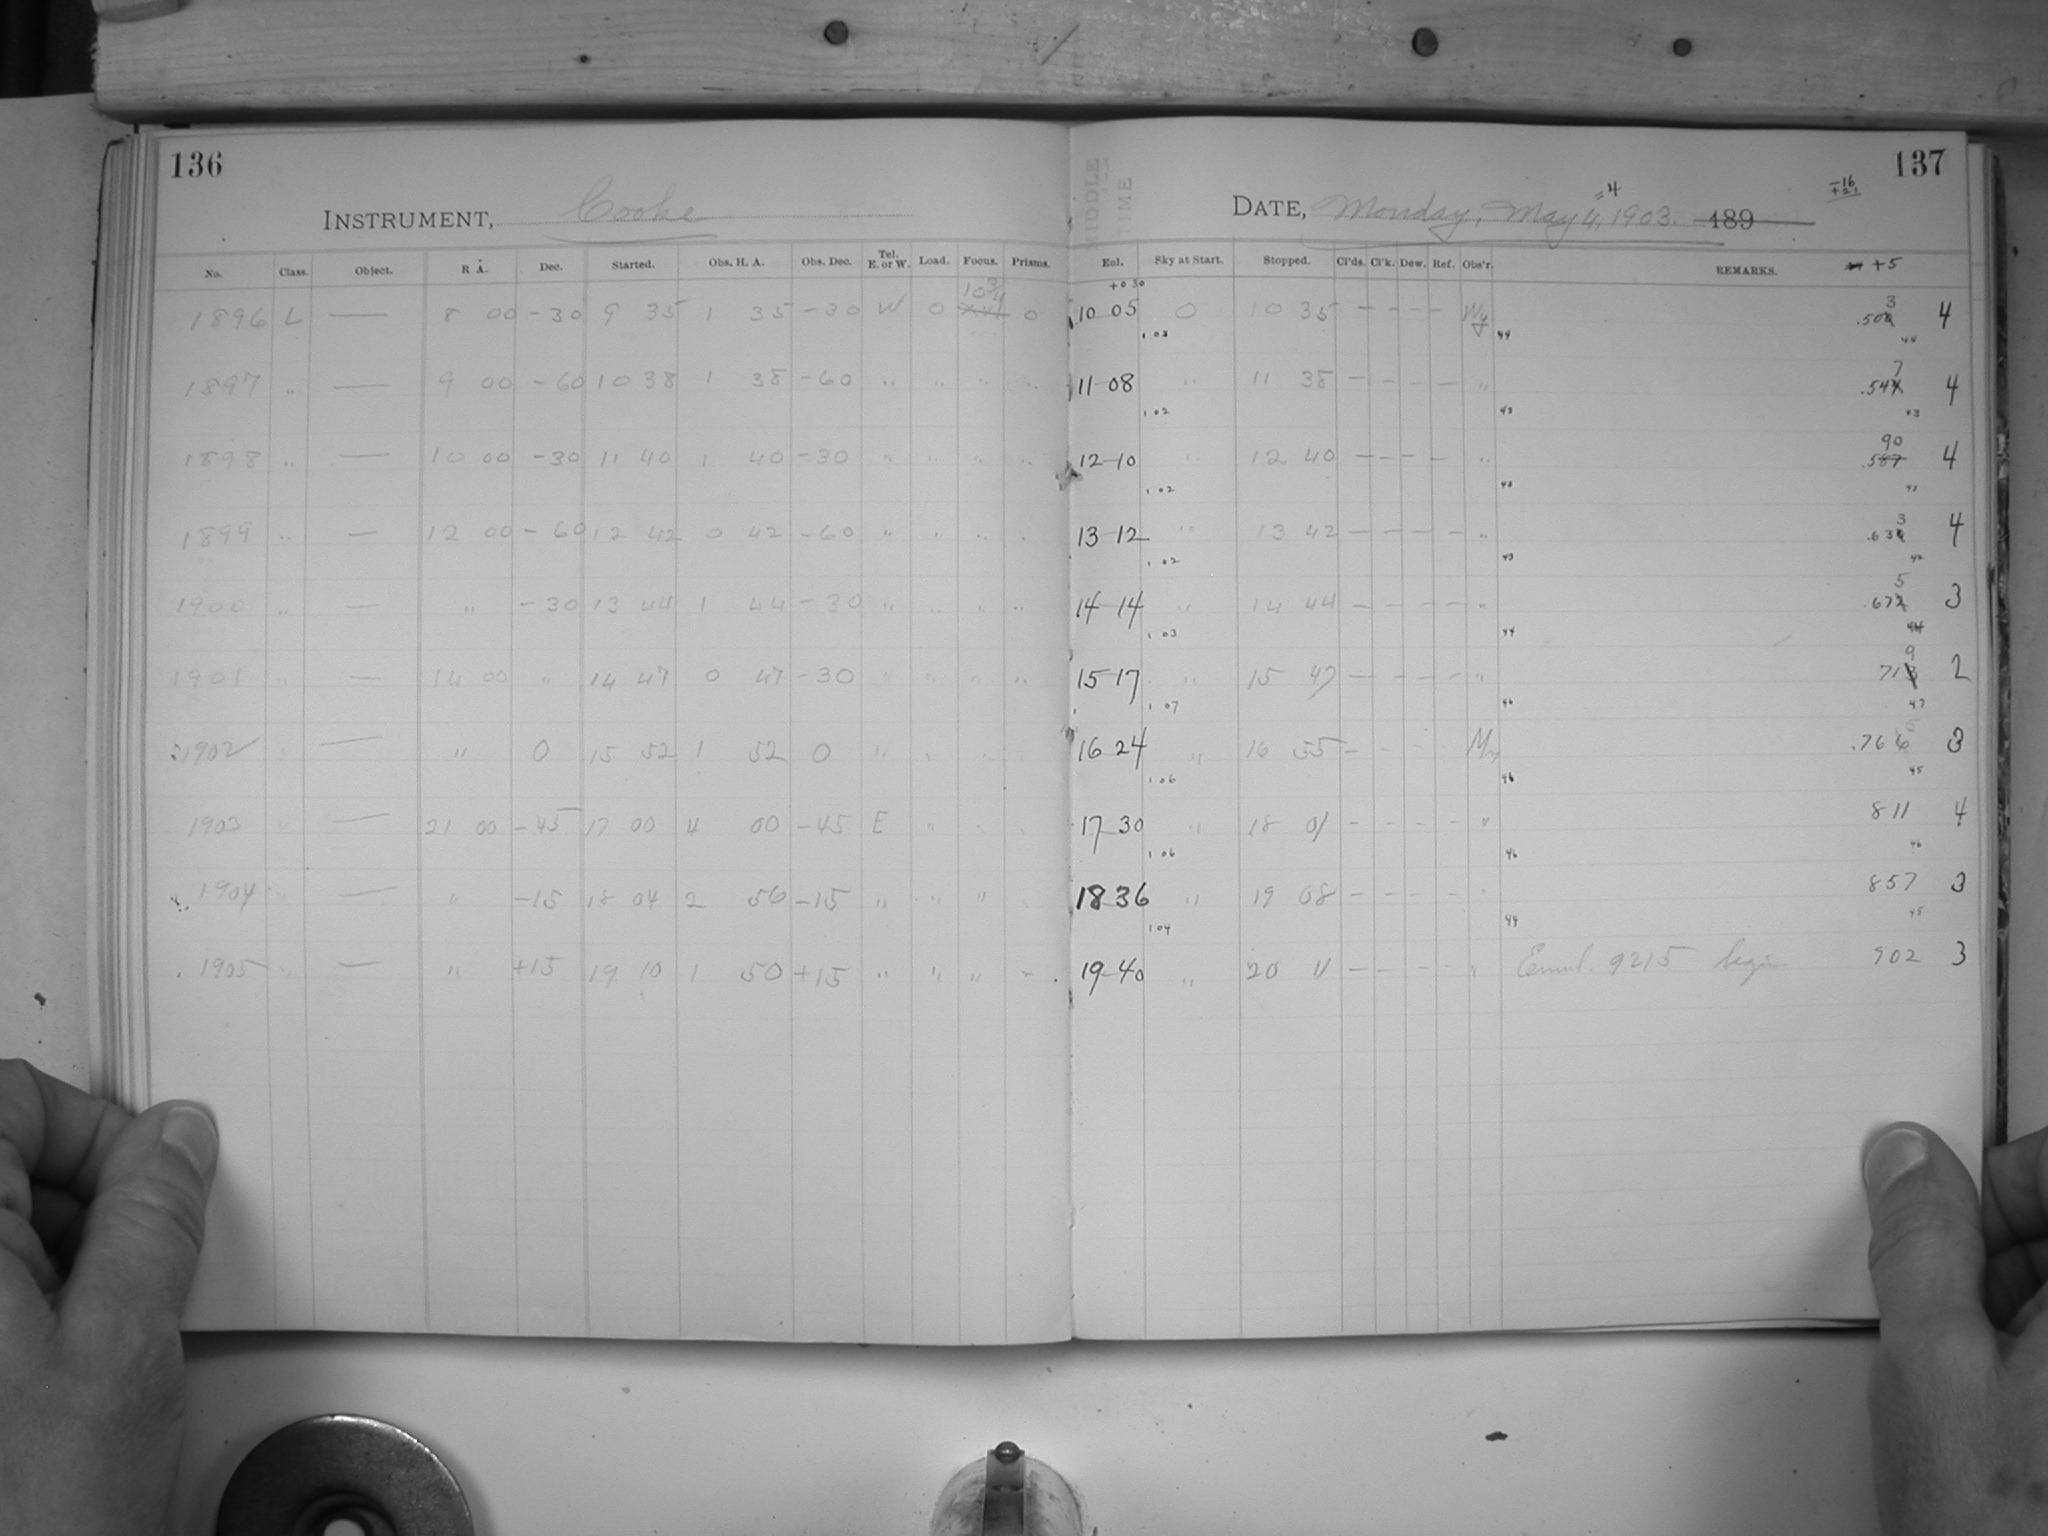 136
INSTRUMENT, Cooke
No. Class. Object. R. A. Dec. Started. Obs. H. A. Obs. Dec. Tel. E. or W. Load. Focus. Prisms.
10 3/4
1896 L — 8 00 -30 9 35 1 35 -30 W 0 0
1897 " — 9 00 -60 10 38 1 38 -60 " " " "
1898 " — 10 00 -30 11 40 1 40 -30 " " " "
1899 " — 12 00 -60 12 42 0 42 -60 " " " "
1900 " — " -30 13 44 1 44 -30 " " " "
1901 " — 14 00 " 14 47 0 47 -30 " " " "
1902 " — " 0 15 52 1 52 0 " " " "
1903 " — 21 00 -45 17 00 4 00 -45 E " " "
1904 " — " -15 18 04 2 56 -15 " " " "
1905 " — " +15 19 10 1 50 +15 " " " "
137
MIDDLE TIME
-16
+21
=4
DATE, Monday, May 4, 1903. 189
Eol. Sky at Start. Stopped. Cl'ds. Cl'k. Dew. Ref. Obs'r. REMARKS. +5
+0 30
10 05 0 10 35 — — — — Wy .503 4
1 03 44 44
11 08 " 11 38 — — — — " .547 4
1 02 43 43
12 10 " 12 40 — — — — " .590 4
1 02 43 43
13 12 " 13 42 — — — — " .633 4
1 02 43 42
14 14 " 14 44 — — — — " .675 3
1 03 44 44
15 17 " 15 47 — — — — " 719 2
1 07 46 47
16 24 " 16 55 — — — — .766 3
1 06 46 45
17 30 " 18 01 — — — — " 811 4
1 06 46 46
18 36 " 19 08 — — — — " 857 3
1 04 44 45
19 40 " 20 11 — — — — " Emul. 9215 begin 902 3